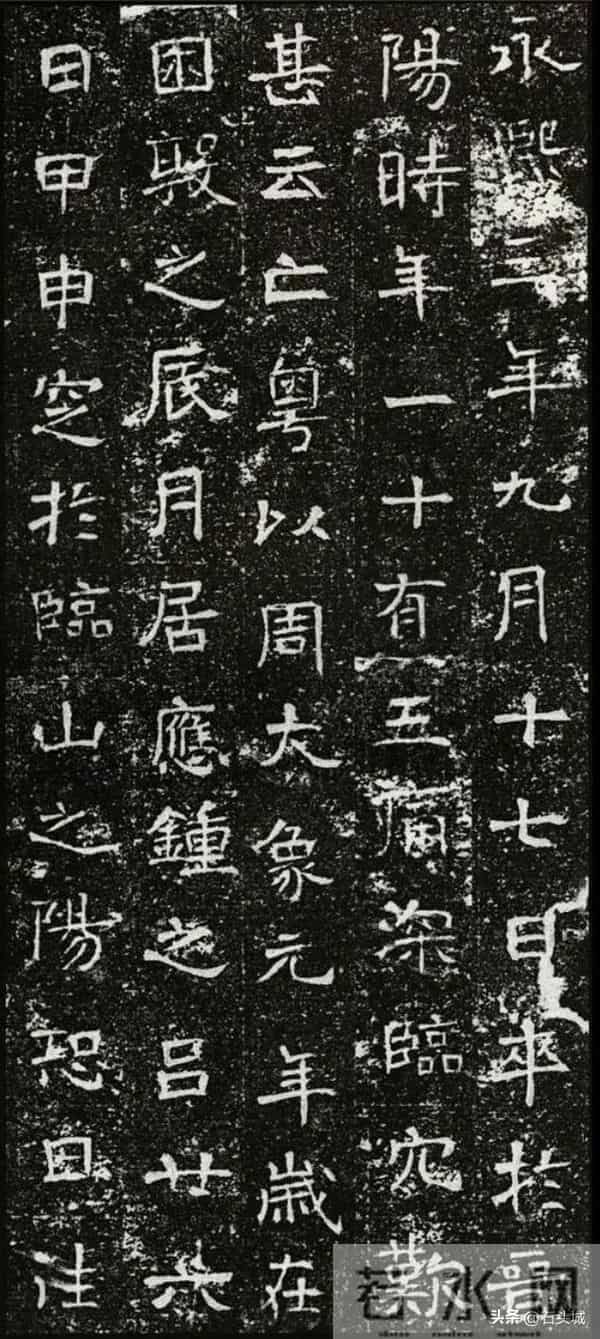 永熙二年九月十七日卒於晉
陽時年一十有五痛深臨穴歎
甚云亡粵以周大象元年歲在
困敦之辰月居應鍾之呂廿六
日甲申窆於臨山之陽恐田注
头条@石头城